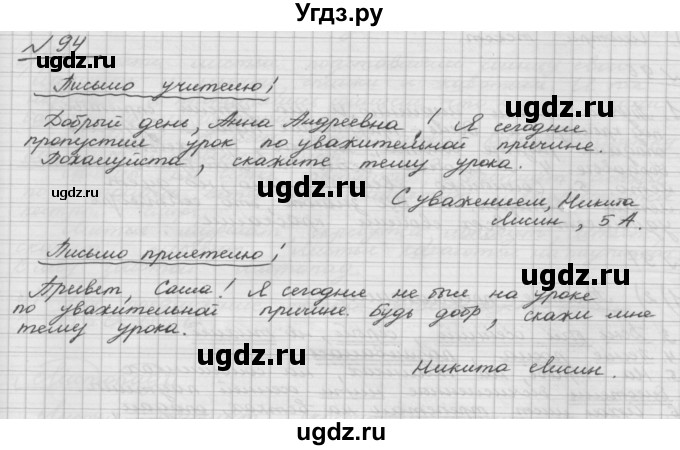 Угдз.ру
№ 94
Письмо учителю!
Добрый день, Анна Андреевна! Я сегодня
пропустил урок по уважительной причине.
Пожалуйста, скажите тему урока.
С уважением, Никита
Лисин, 5 А.
Письмо приятелю!
Привет, Саша! Я сегодня не был на уроке
по уважительной причине. Будь добр, скажи мне
тему урока.
Никита Лисин.
ugdz.ru
ugdz.ru
ugdz.ru
ugdz.ru
ugdz.ru
ugdz.ru
ugdz.ru
ugdz.ru
ugdz.ru
ugdz.ru
ugdz.ru